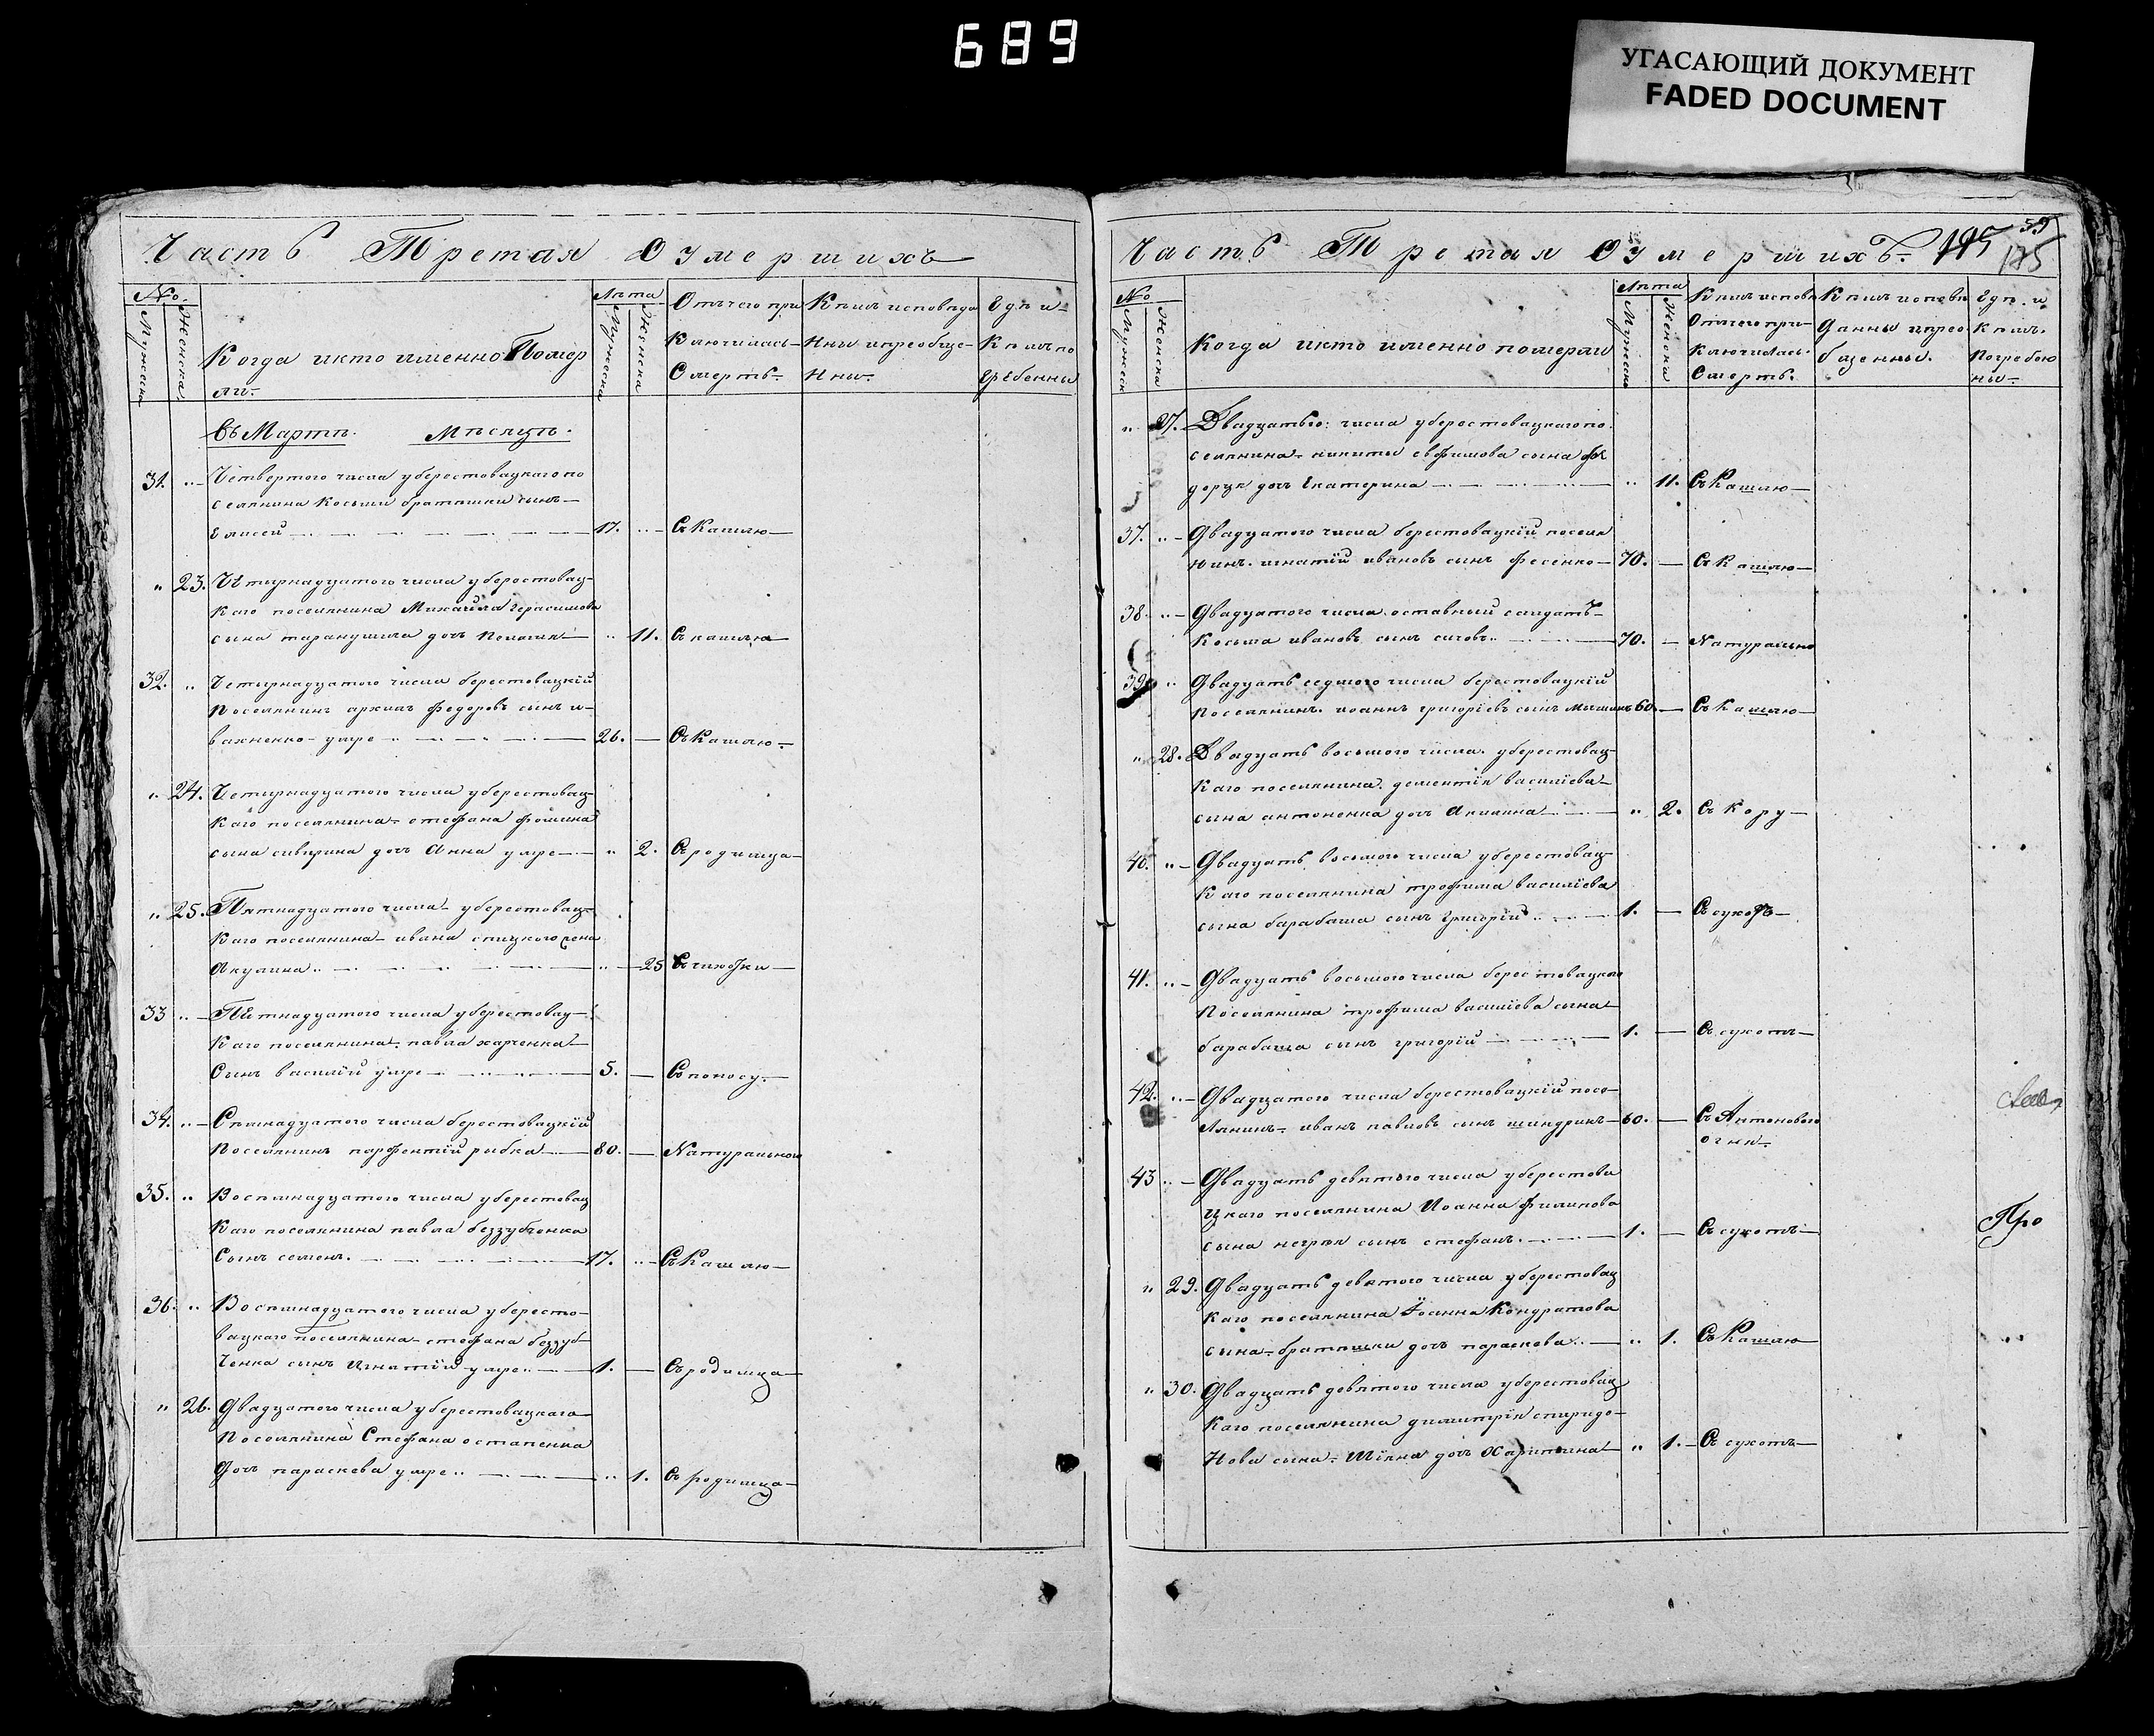 689
УГАСАЮЩИЙ ДОКУМЕНТ
FADED DOCUMENT
Часть Третая О умершихъ
No.
Мужеска
Женска
Когда и кто именно Помер
ли.
Лѣта
Мужеска
Женска
Отъ чего при
ключилась
Смерть.
Кѣмъ исповѣда
ны и преобще
ны.
Гдѣ и
Кѣмъ по
гребенны
Въ Мартѣ. Мѣсяцѣ.
31. " Четвертого числа уберестовацкаго по
селянина Косьми браташки сынъ
Елисей 17. " Съ Кашлю
" 23. Четырнадцатого числа уберестовац
каго поселянина Михаила Герасимова
сына таранушила дочь Пелагия " 11. Съ кашлю
32. " Четырнадцатого числа берестовацкій
Поселянинъ архипъ федоровъ сынъ и
важненко умре 26. Съ Кашлю.
" 24. Четырнадцатого числа уберестовац
каго поселянина стефана фомина
сына сиверина дочь Анна умре " 2. Съ родимца
" 25. Пятнадцатого числа уберестовац
каго поселянина ивана спицкого жена
Акулина " 25 Съ чихотки
33 " Пятнадцатого числа уберестовац
каго поселянина павла харченка
Сынъ василій умре 5. Съ поносу.
34. " Семнадцатого числа берестовацкій
Поселянинъ парфентій рыбка 80. Натурально
35. " Восемнадцатого числа уберестовац
каго поселянина павла беззубченка
Сынъ семенъ. 17. " Съ Кашлю
36. " Восемнадцатого числа убересто
вацкаго поселянина стефана беззуб
ченка сынъ Игнатій умре 1. Съ родимца
" 26. Двадцатого числа уберестовацкаго
Поселянина Стефана остапенка
Дочь параскева умре " 1. Съ родимца
Часть Третая О умершихъ. 195 59
175
No
Мужеск
Женска
Когда и кто именно померли
Лѣта
Мужеска
Женска
Кѣмъ исповѣ
Отчего при
ключилась
Смерть.
Кѣмъ исповѣ
данны и прео
бщенны.
Гдѣ и
кѣмъ.
Погребен
ны
" 27. Двадцатьго: числа уберестовацкаго по
селянина никиты евфимова сына фе
дорця дочь Екатерина " 11. Съ Кашлю
37. " Двадцатого числа берестовацкій поселя
нинъ игнатій ивановъ сынъ фесенко 70. Съ Кашлю
38. " Двадцатого числа оставный салдатъ
Косьма ивановъ сынъ сичовъ 70. Натурально
39. " Двадцать седмого числа берестовацкій
Поселянинъ иоаннъ григоріевъ сынъ 60. Съ Кашлю
" 28. Двадцать восьмого числа уберестовац
каго поселянина дементія василіева
сына антоненка дочь Акилина " 2. Съ Кору
40. " Двадцать восьмого числа уберестовац
каго поселянина трофима василіева
сына барабаша сынъ григорій 1. Съ сухотъ
41. " Двадцать восьмого числа берестовацкого
Поселянина трофима василіева сына
барабаша сынъ григорій 1. Съ сухотъ
42. " Двадцатого числа берестовацкій посе
лянинъ иванъ павловъ сынъ шиндрикъ 60. Съ Антонового
огня.
43 " Двадцать девятого числа уберестова
цкаго поселянина Иоанна филипова
сына негрѣя сынъ стефанъ. 1. Съ сухотъ
Про
" 29. Двадцать девятого числа уберестовац
каго поселянина Іоанна Кондратова
сына браташки дочь параскева " 1. Съ Кашлю
" 30. Двадцать девятого числа уберестовац
каго поселянина димитрія спиридо
нова сына Шіяна дочь Харитина " 1. Съ сухотъ